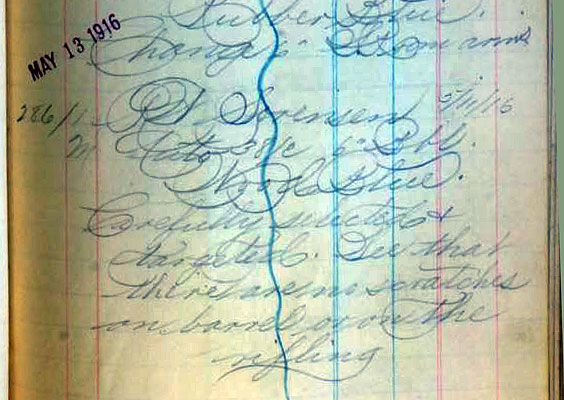 Rubber Blue.
MAY 13 1916
Change 6" Stocm arms
286/1 Sorensen 5/11/16
Auto 38c 6" Bbl.
Wood Blue.
Carefully selected &
targeted. See that
there are no scratches
on barrel or on the
rifling